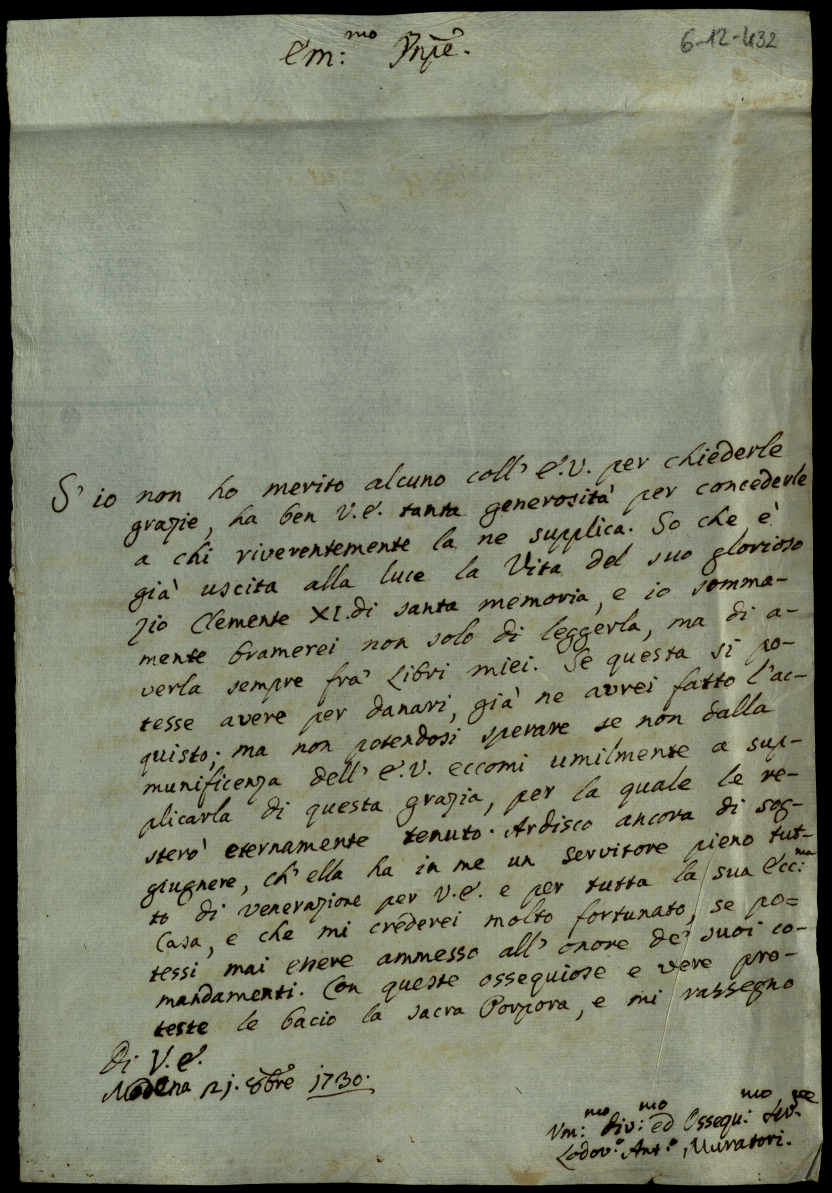 6-12-432
Em:mo Pnpẽ.
S' io non ho merito alcuno coll' E.V. per chiederle
grazie, ha ben V.E. tanta generosità per concederle
a chi riverentemente la ne supplica. So che è
già uscita alla luce la Vita del suo glorioso
Zio Clemente XI. di santa memoria, e io somma-
mente bramerei non solo di leggerla, ma di a-
verla sempre fra' Libri miei. Se questa si po-
tesse avere per danari, già ne avrei fatto l'ac-
quisto; ma non potendosi sperare se non dalla
munificenza dell' E.V. eccomi umilmente a sup-
plicarla di questa grazia, per la quale le re-
sterò eternamente tenuto. Ardisco ancora di sog-
giugnere, ch' ella ha in me un servitore pieno tut-
to di venerazione per V.E. e per tutta la sua Ecc:ma
Casa, e che mi crederei molto fortunato, se po=
tessi mai essere ammesso all' onore de' suoi co-
mandamenti. Con queste ossequiose e vere pro-
teste le bacio la sacra Porpora, e mi rassegno
Di V.E.
Modena 21. 8bre 1730.
Um:mo Div:mo ed Ossequ:mo Ser.re
Lodov.o Ant.o Muratori.